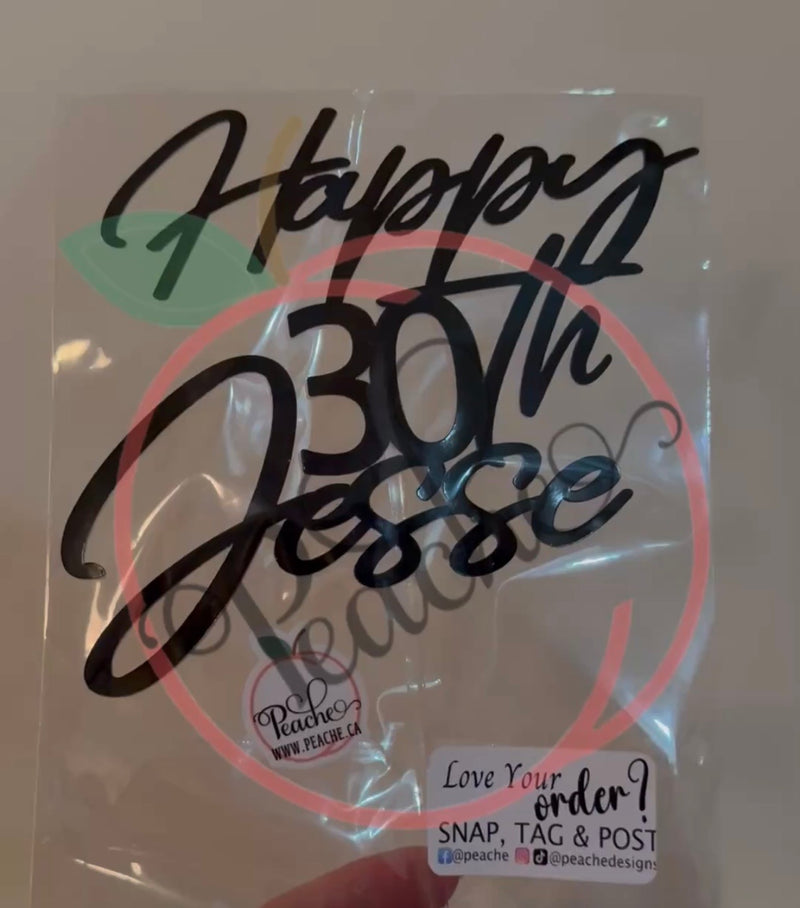 Happy
30th
Jesse
Peache
Peache
WWW.PEACHE.CA
Love Your
order?
SNAP, TAG & POST
@peache @peachedesigns